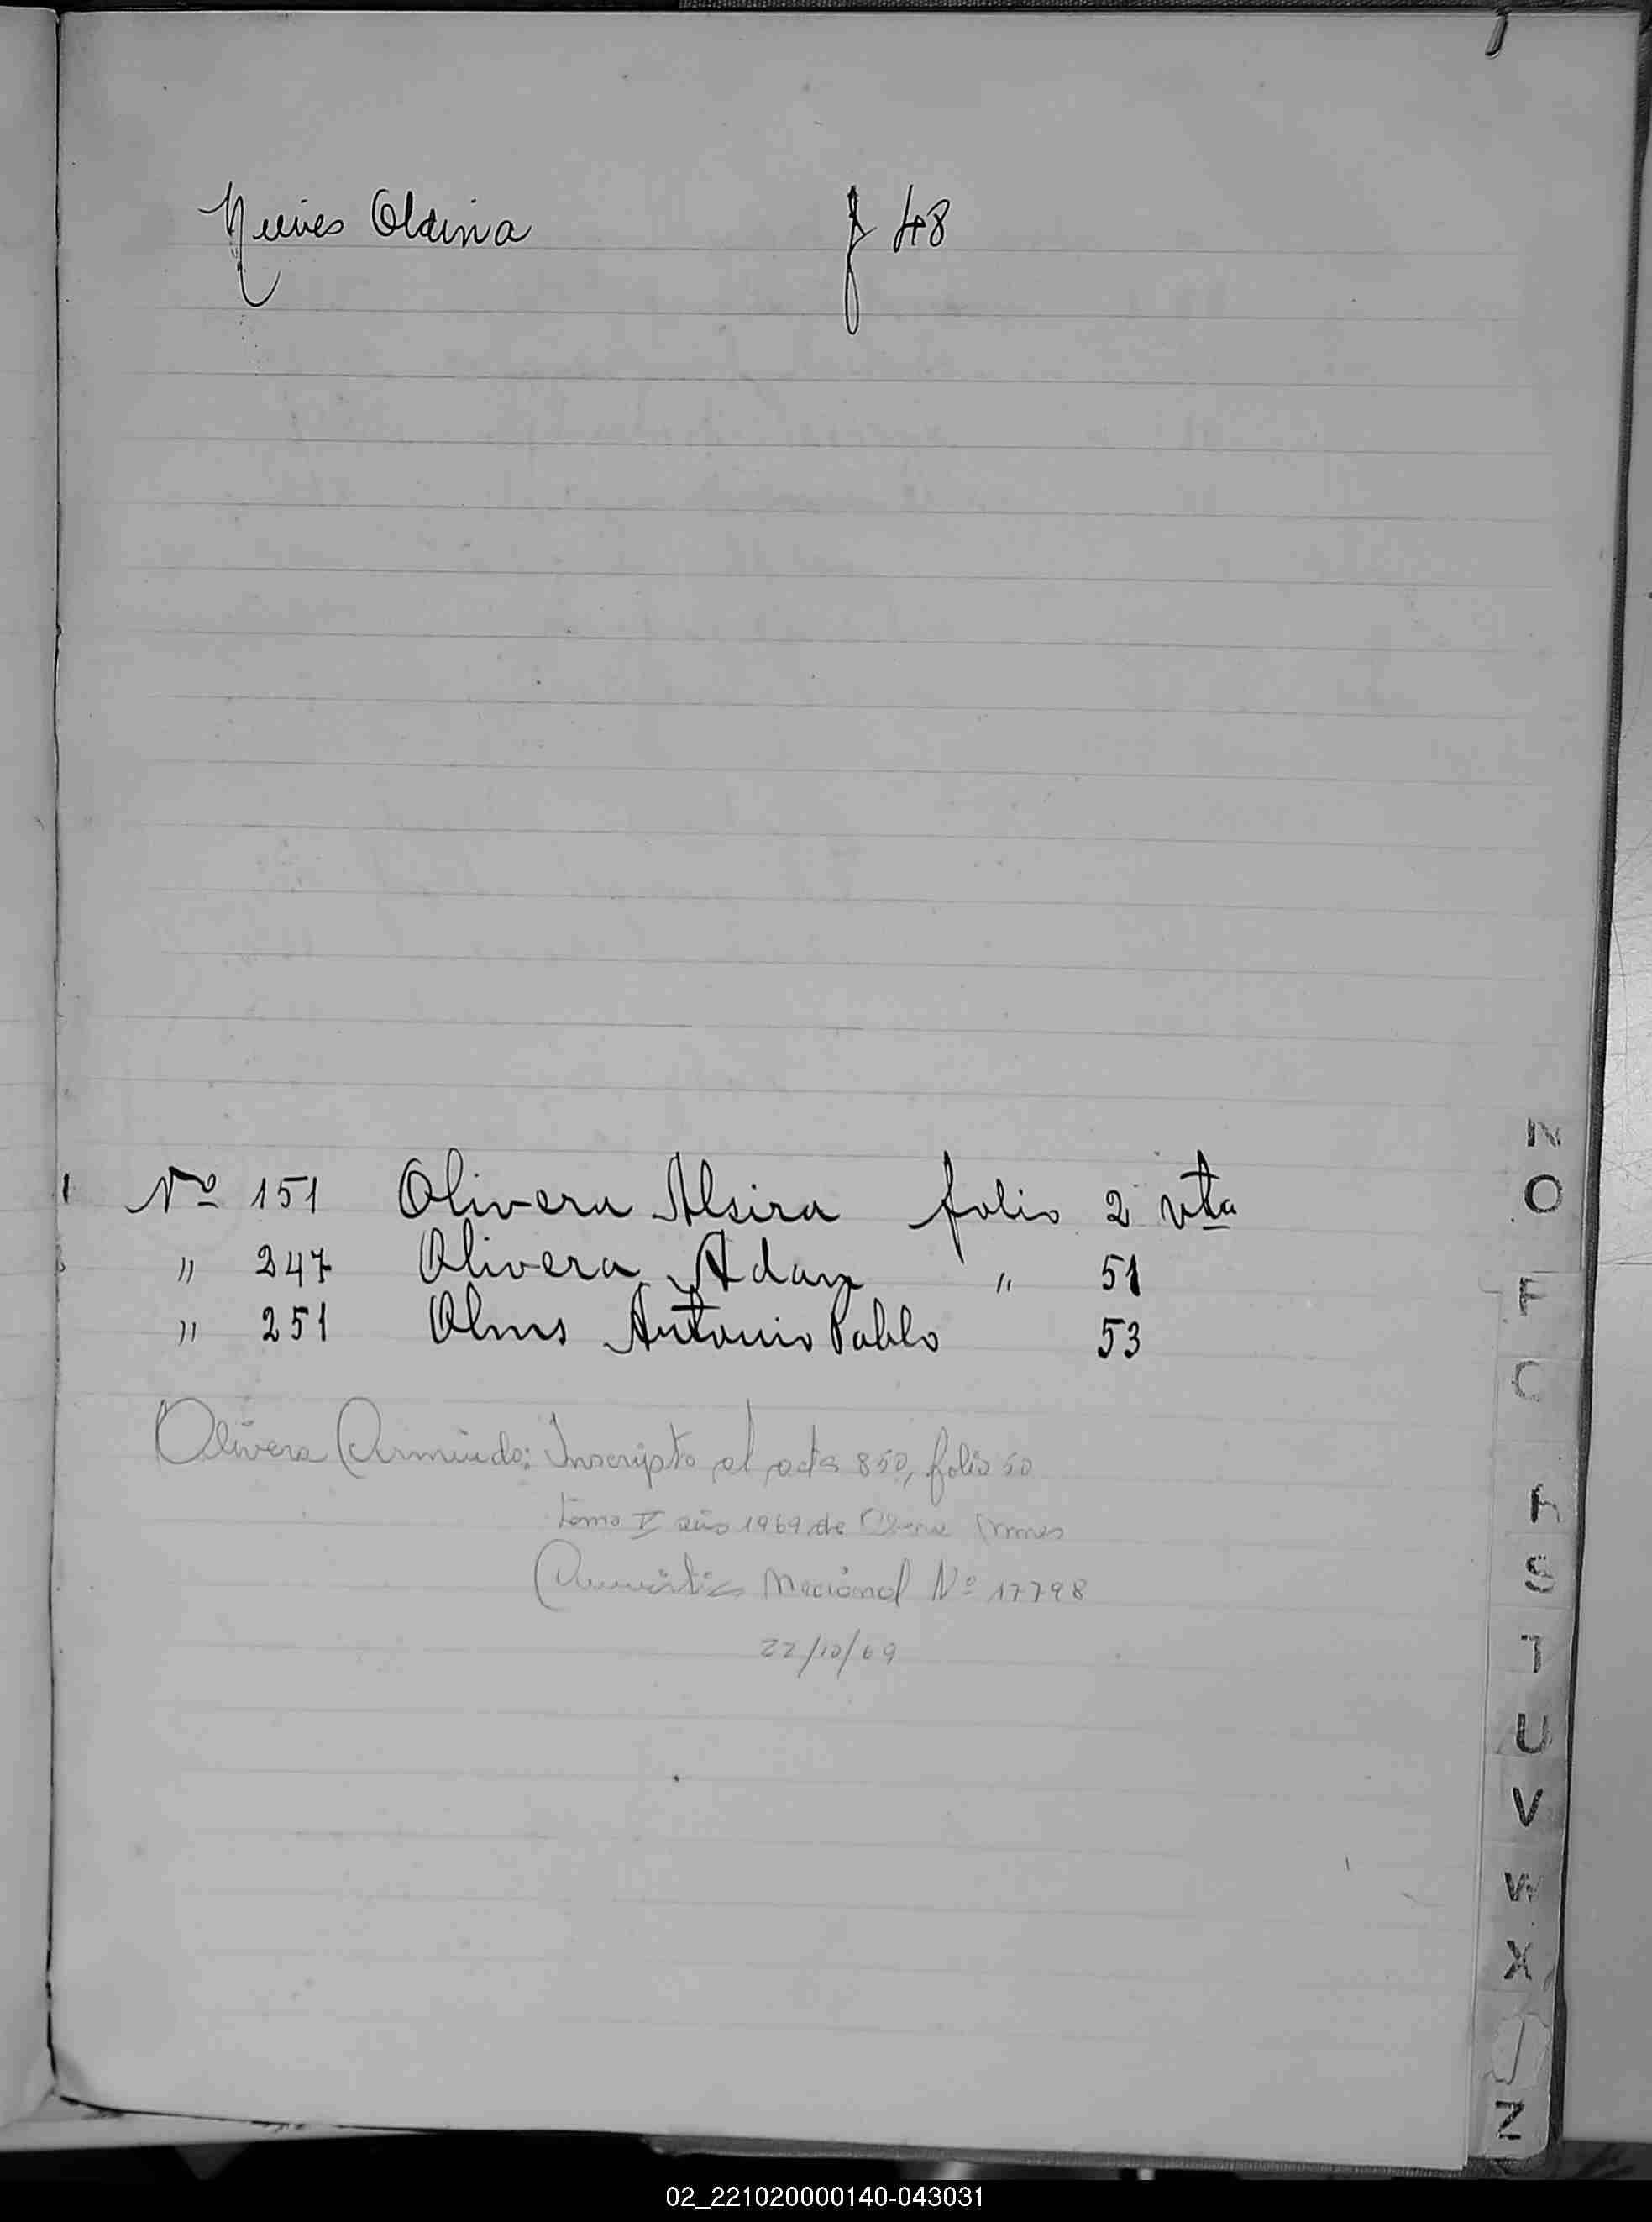 Nuñes Oldina f 48
Nº 151 Olivera Alsira folio 2 vta
" 247 Olivera Adan " 51
" 251 Olms Antonio Pablo 53
Olivera Armindo: Inscripto al acta 850, folio 50
tomo V año 1969 de
Amnistia Nacional Nº 17798
22/10/69
N
O
S
T
U
V
W
X
Z
02_221020000140-043031